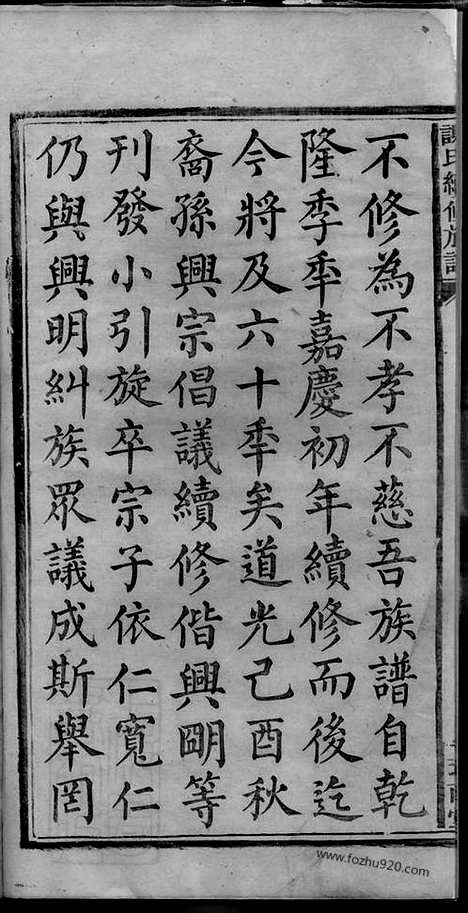 不修為不孝不慈吾族譜自乾
隆季秊嘉慶初年續修而後迄
今將及六十秊矣道光己酉秋
裔孫興宗倡議續修偕興明等
刊發小引旋卒宗子依仁寬仁
仍與興明糾族眾議成斯舉罔
www.fozhu920.com